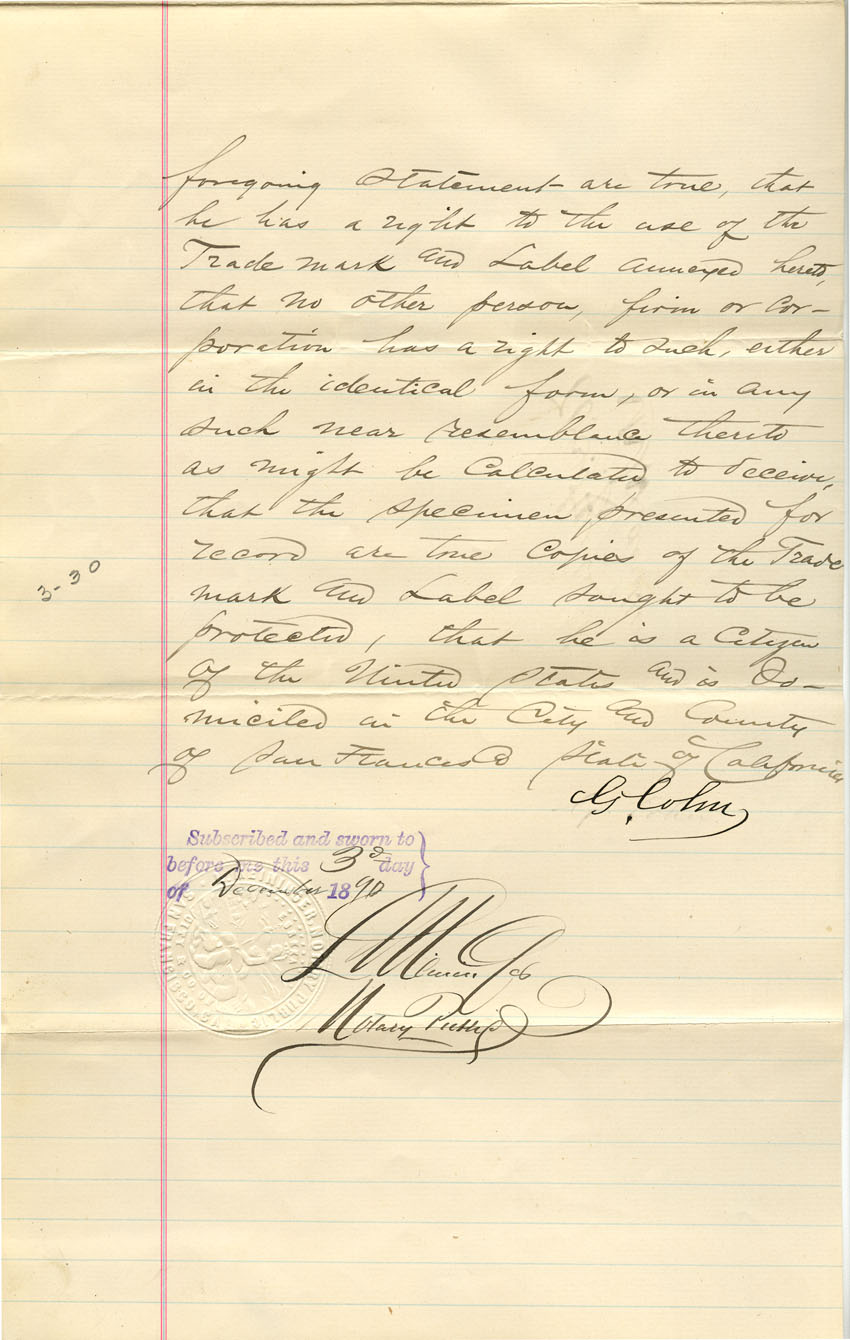 foregoing statement are true, that
he has a right to the use of the
Trade mark and Label annexed hereto,
that no other person, firm or cor-
poration has a right to such, either
in the identical form, or in any
such near resemblance thereto
as might be Calculated to deceive,
that the specimen presented for
record are true Copies of the Trade
3-30
mark and Label sought to be
protected, that he is a Citizen
of the United States and is do-
miciled in the City and County
of San Francisco State of California
G. Cohn
Subscribed and sworn to
before me this 3d day
of December 1890
Notary Public
NOTARY PUBLIC
SAN FRANCISCO